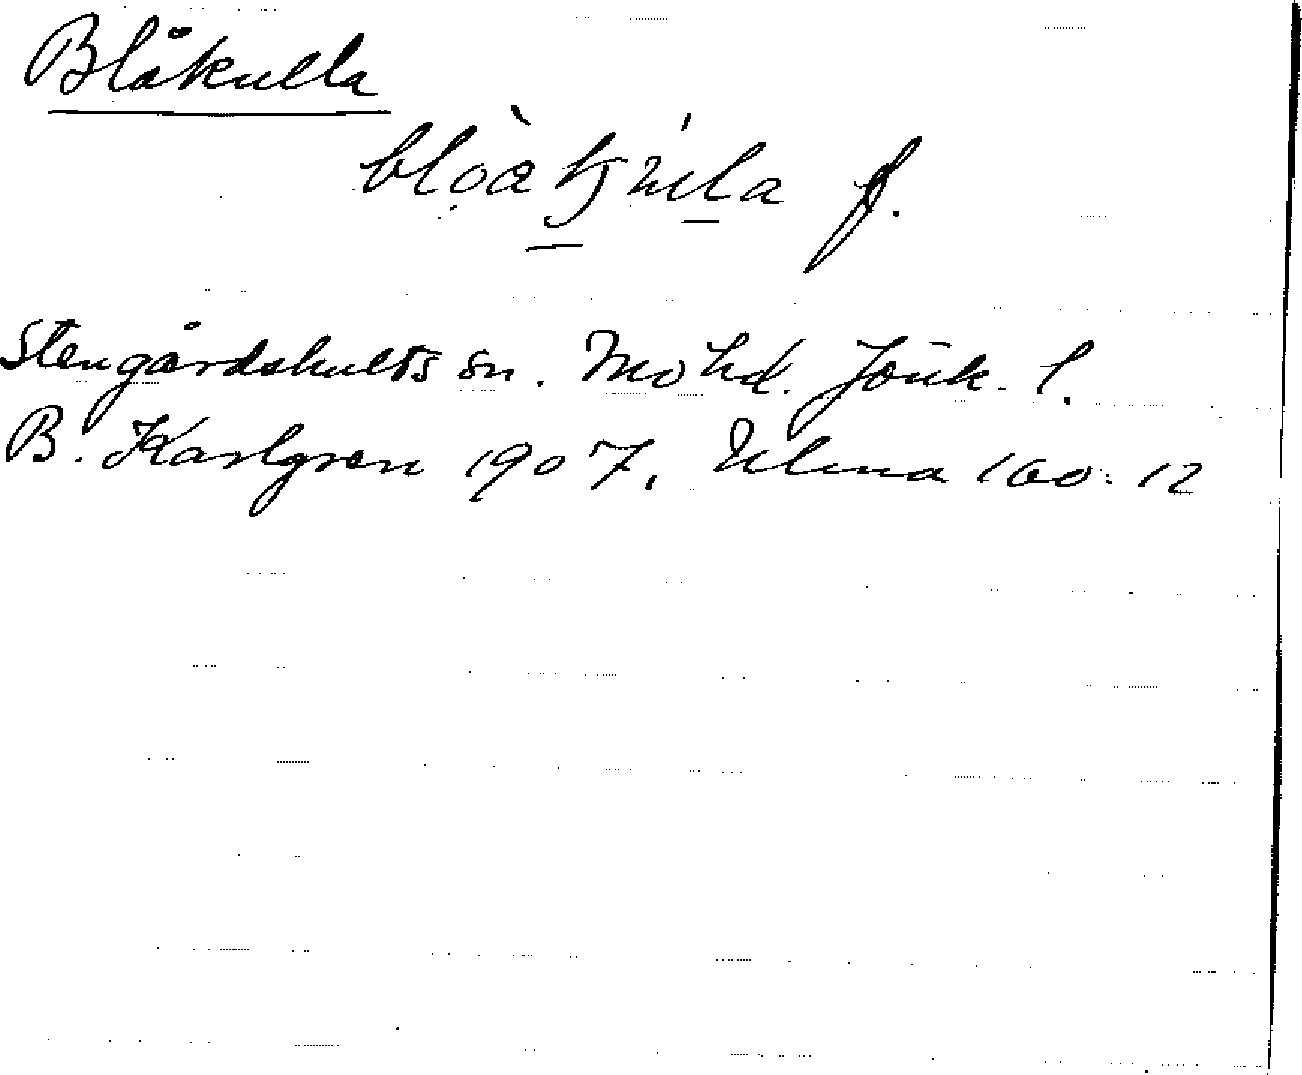 Blåkulla
blo̤àkju̇la f.
Stengårdshults sn. Mo hd. Jönk. l.
B. Karlgren 1907. Ulma 100:12